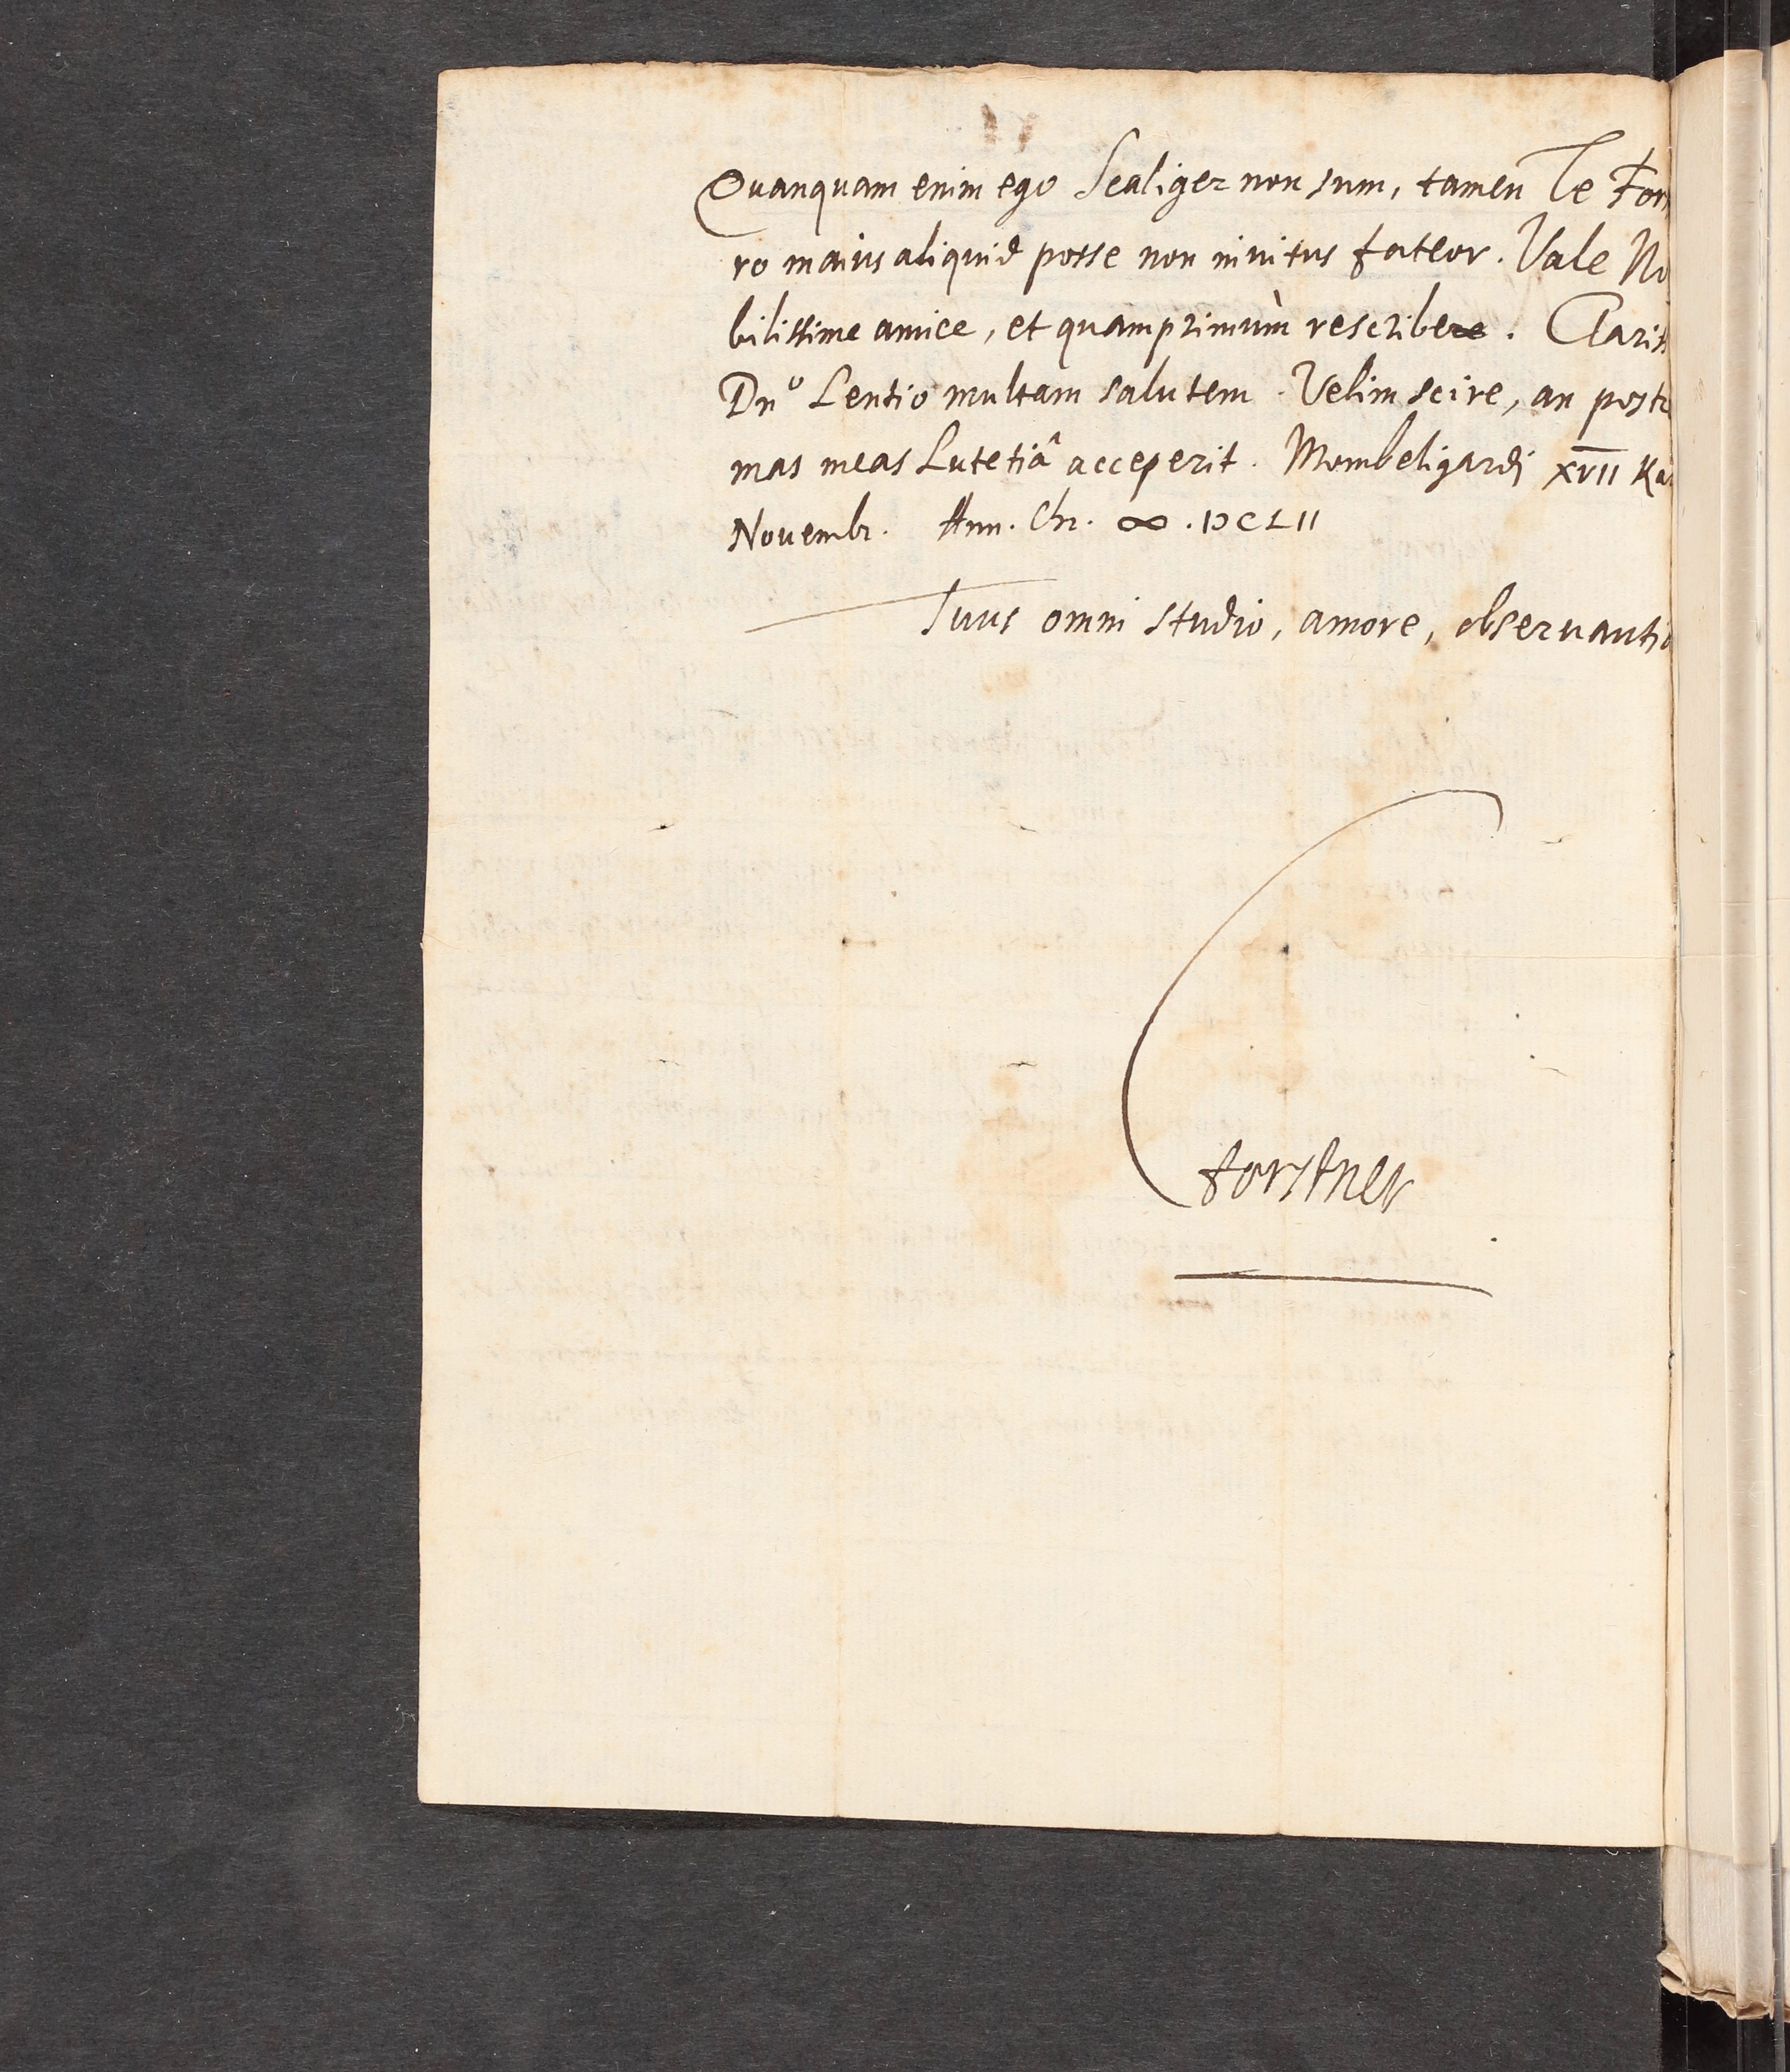 Quanquam enim ego Scaliger non sum, tamen Te For
ro maius aliquid posse non invitus fateor. Vale No
bilissime amice, et quamprimùm rescribe. Clariss
Dnº Lentio multam salutem. Velim scire, an postr
mas meas Lutetiâ acceperit. Mombeligardi XVII Kal
Novembr. Ann. Chr. ∞.IƆCLII
Tuus omni studio, amore, observantia
Forstner